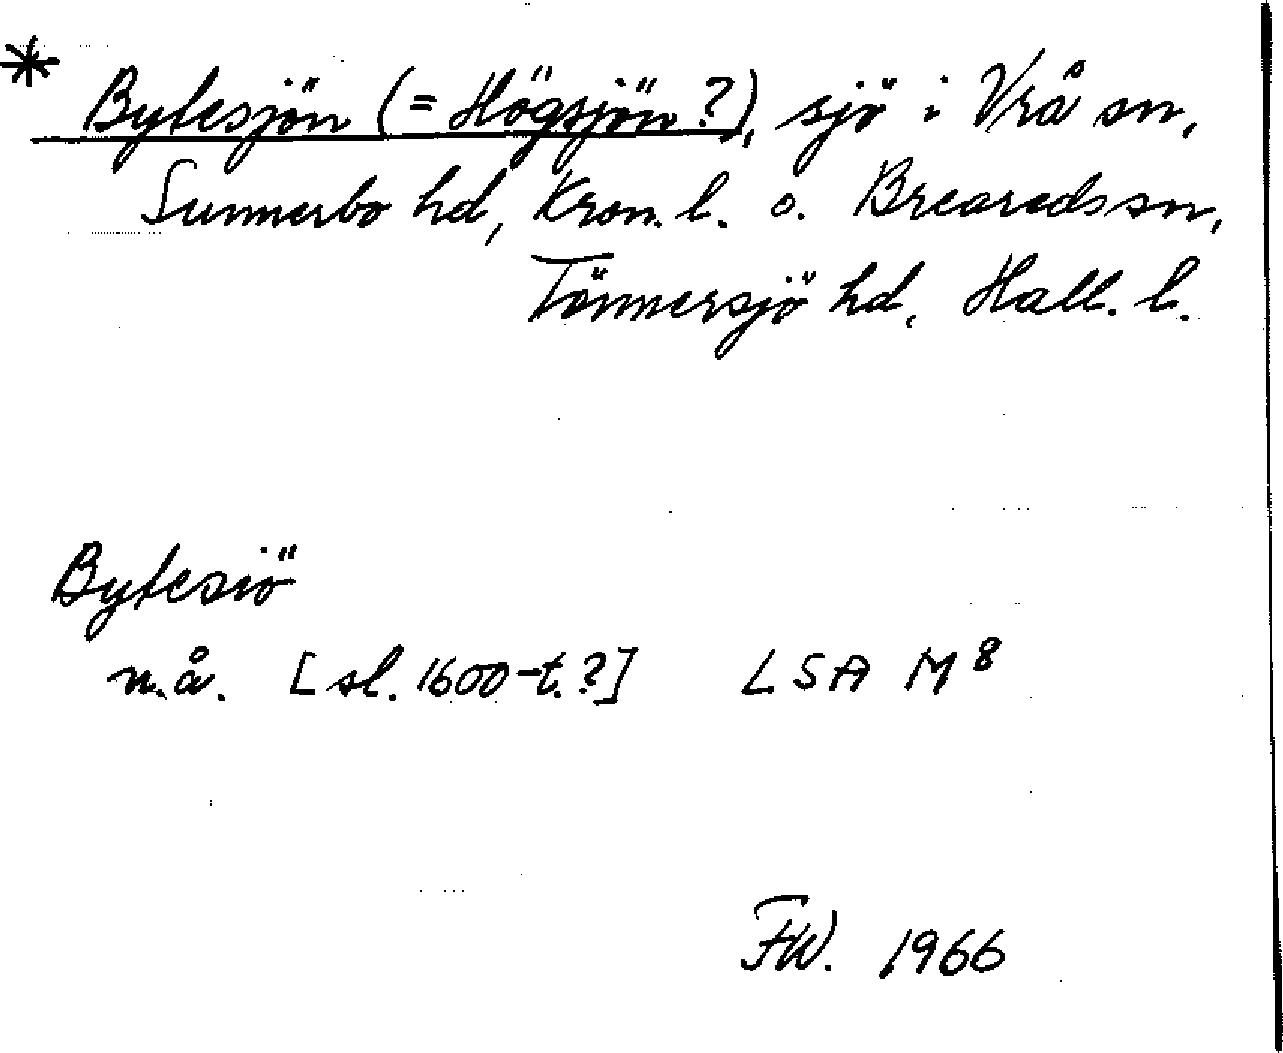 * Bytesjön (= Högsjön?), sjö i Vrå sn,
Sunnerbo hd, Kron. l. o. Breareds sn,
Tönnersjö hd, Hall. l.
Bytesiö
n.å. [sl. 1600-t.?] LSA M8
FW. 1966